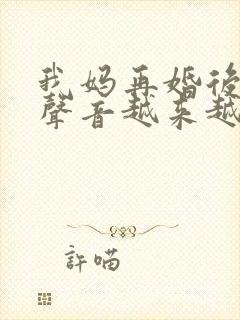 我妈再婚後
聲音越来越
許喵